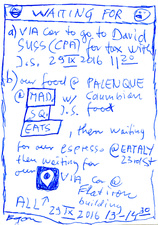 WAITING FOR
a) VIA car to go to David
SUSS (CPA) for tax with
J.S. 29 IX 2016 11 30
b) our food @ PALENQUE
@ MAD. w/ Colombian
SQ. J.S. food
EATS, then waiting
for our espresso @ EATALY
then waiting for 23rd St
our VIA car @
Flatiron
building
ALL ↑ 29 IX 2016 13-14 30